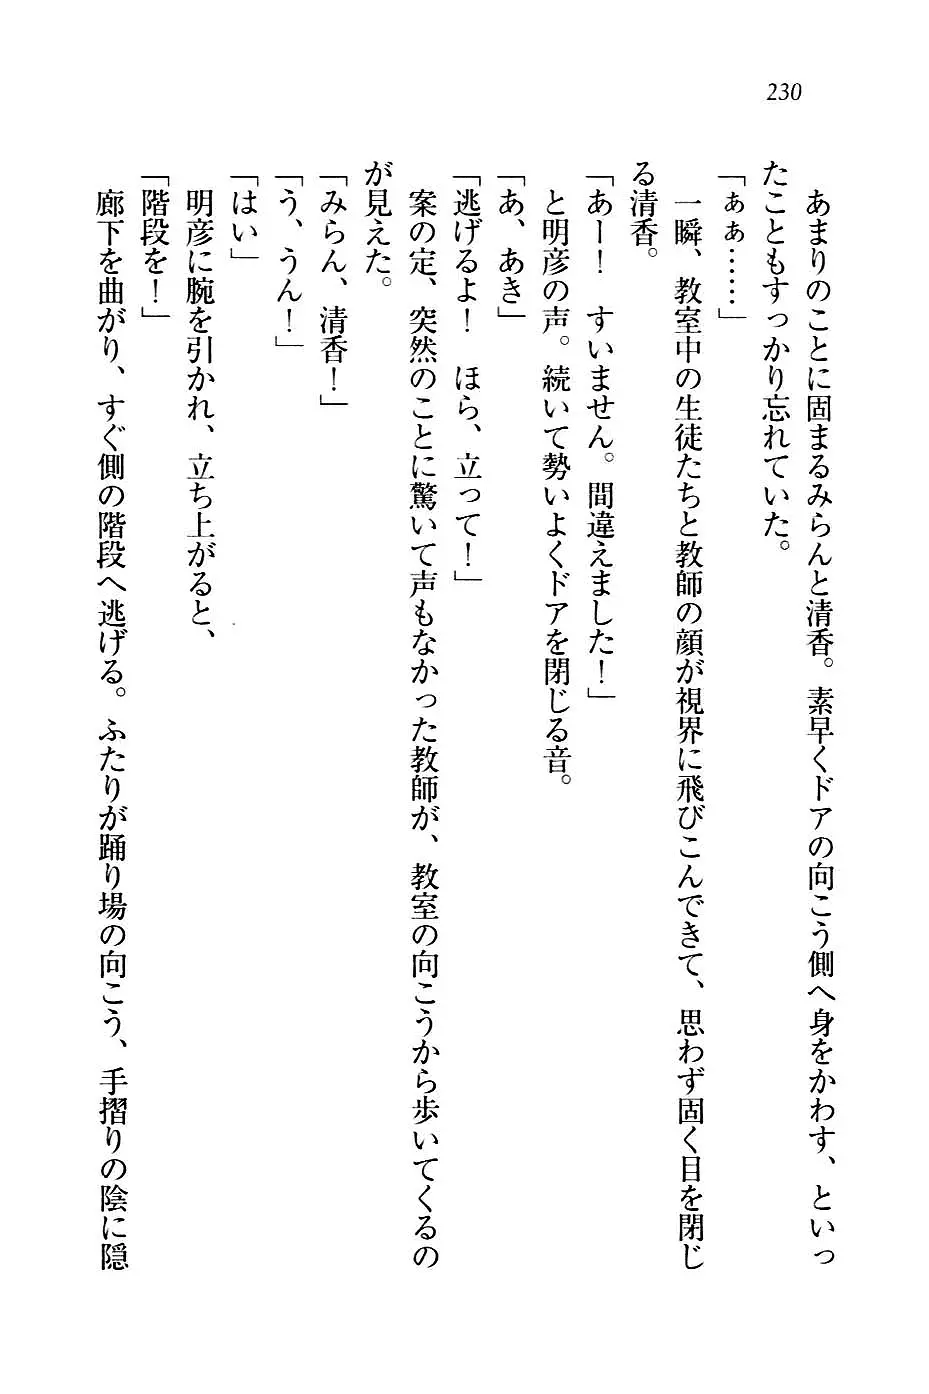 230
　あまりのことに固まるみらんと清香。素早くドアの向こう側へ身をかわす、といっ
たこともすっかり忘れていた。
「ぁぁ……」
　一瞬、教室中の生徒たちと教師の顔が視界に飛びこんできて、思わず固く目を閉じ
る清香。
「あー！　すいません。間違えました！」
　と明彦の声。続いて勢いよくドアを閉じる音。
「あ、あき」
「逃げるよ！　ほら、立って！」
　案の定、突然のことに驚いて声もなかった教師が、教室の向こうから歩いてくるの
が見えた。
「みらん、清香！」
「う、うん！」
「はい」
　明彦に腕を引かれ、立ち上がると、
「階段を！」
　廊下を曲がり、すぐ側の階段へ逃げる。ふたりが踊り場の向こう、手摺りの陰に隠